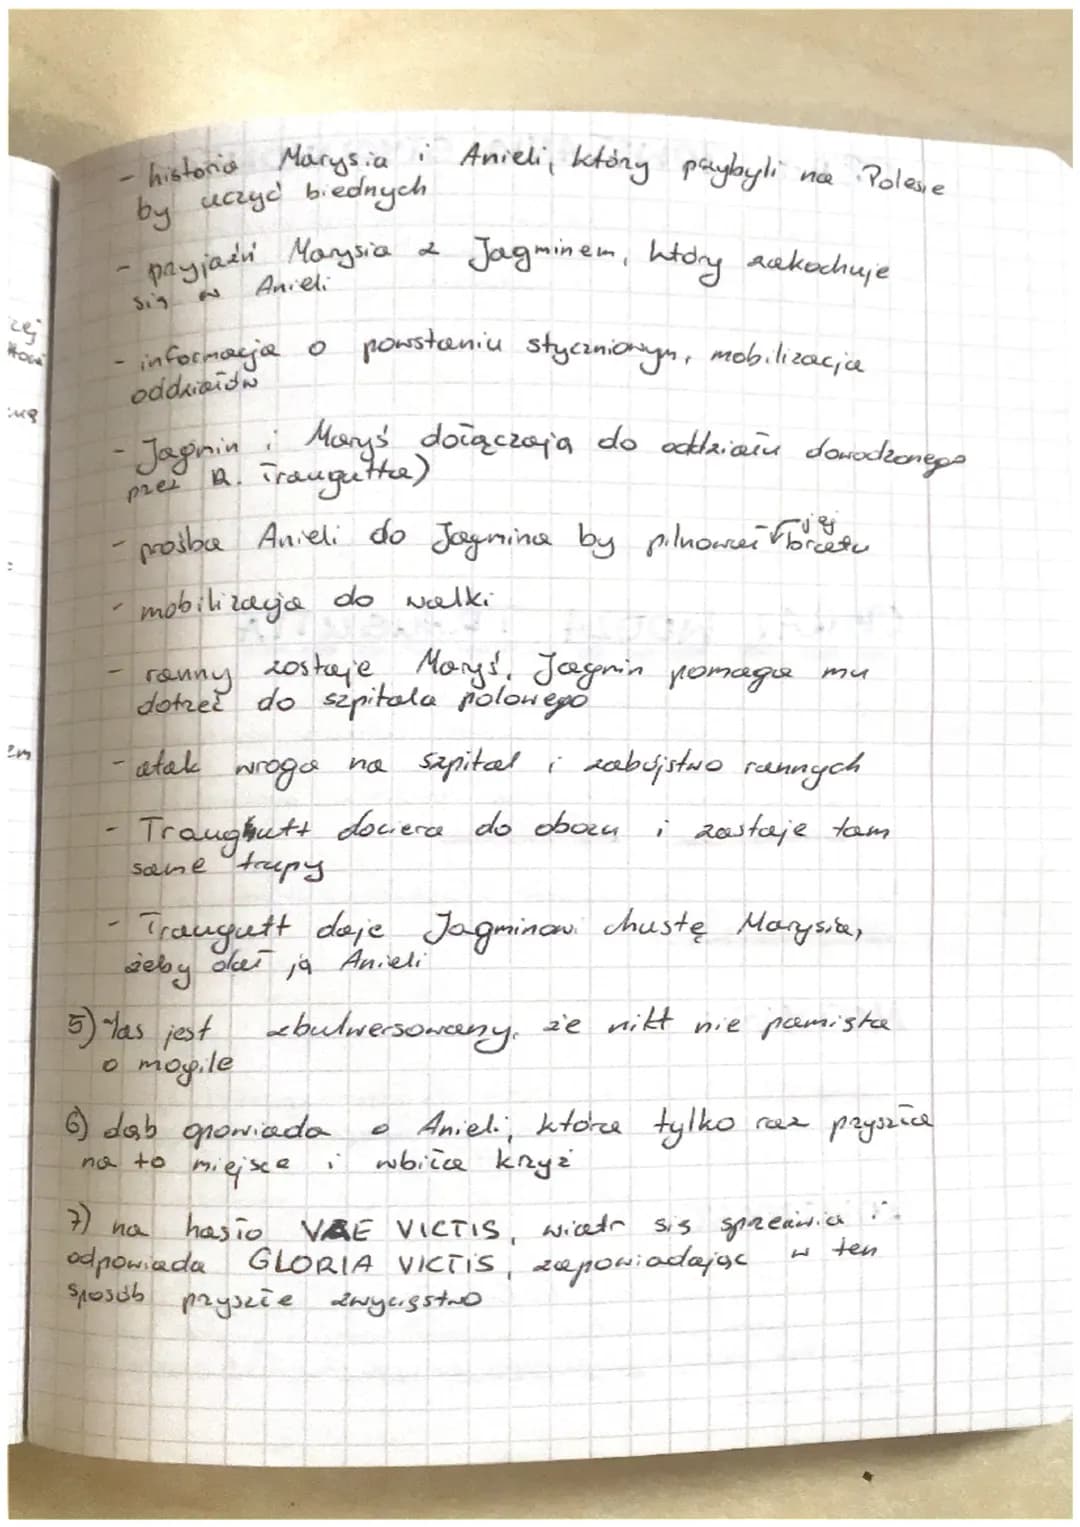 - historia Marysia i Anieli, którzy przybyli na Polesie
by uczyć biednych
- przyjaźń Marysia z Jagminem, który zakochuje
się w Anieli
- informacja o powstaniu styczniowym, mobilizacja
oddziałów
- Jagmin i Maryś dołączają do oddziału dowodzonego
przez R. Traugutta)
- prośba Anieli do Jagmina by pilnował jej bratu
- mobilizacja do walki
- ranny zostaje Maryś, Jagmin pomaga mu
dotrzeć do szpitala polowego
- atak wroga na szpital i zabójstwo rannych
- Traugutt dociera do obozu i zastaje tam
same trupy
- Traugutt daje Jagminowi chustę Marysia,
żeby dał ją Anieli
5) las jest zbulwersowany, że nikt nie pamięta
o mogile
6) dąb opowiada o Anieli, która tylko raz przyszła
na to miejsce i wbiła krzyż
7) na hasło VAE VICTIS, wiatr się sprzeciwia i
odpowiada GLORIA VICTIS, zapowiadając w ten
sposób przyszłe zwycięstwo